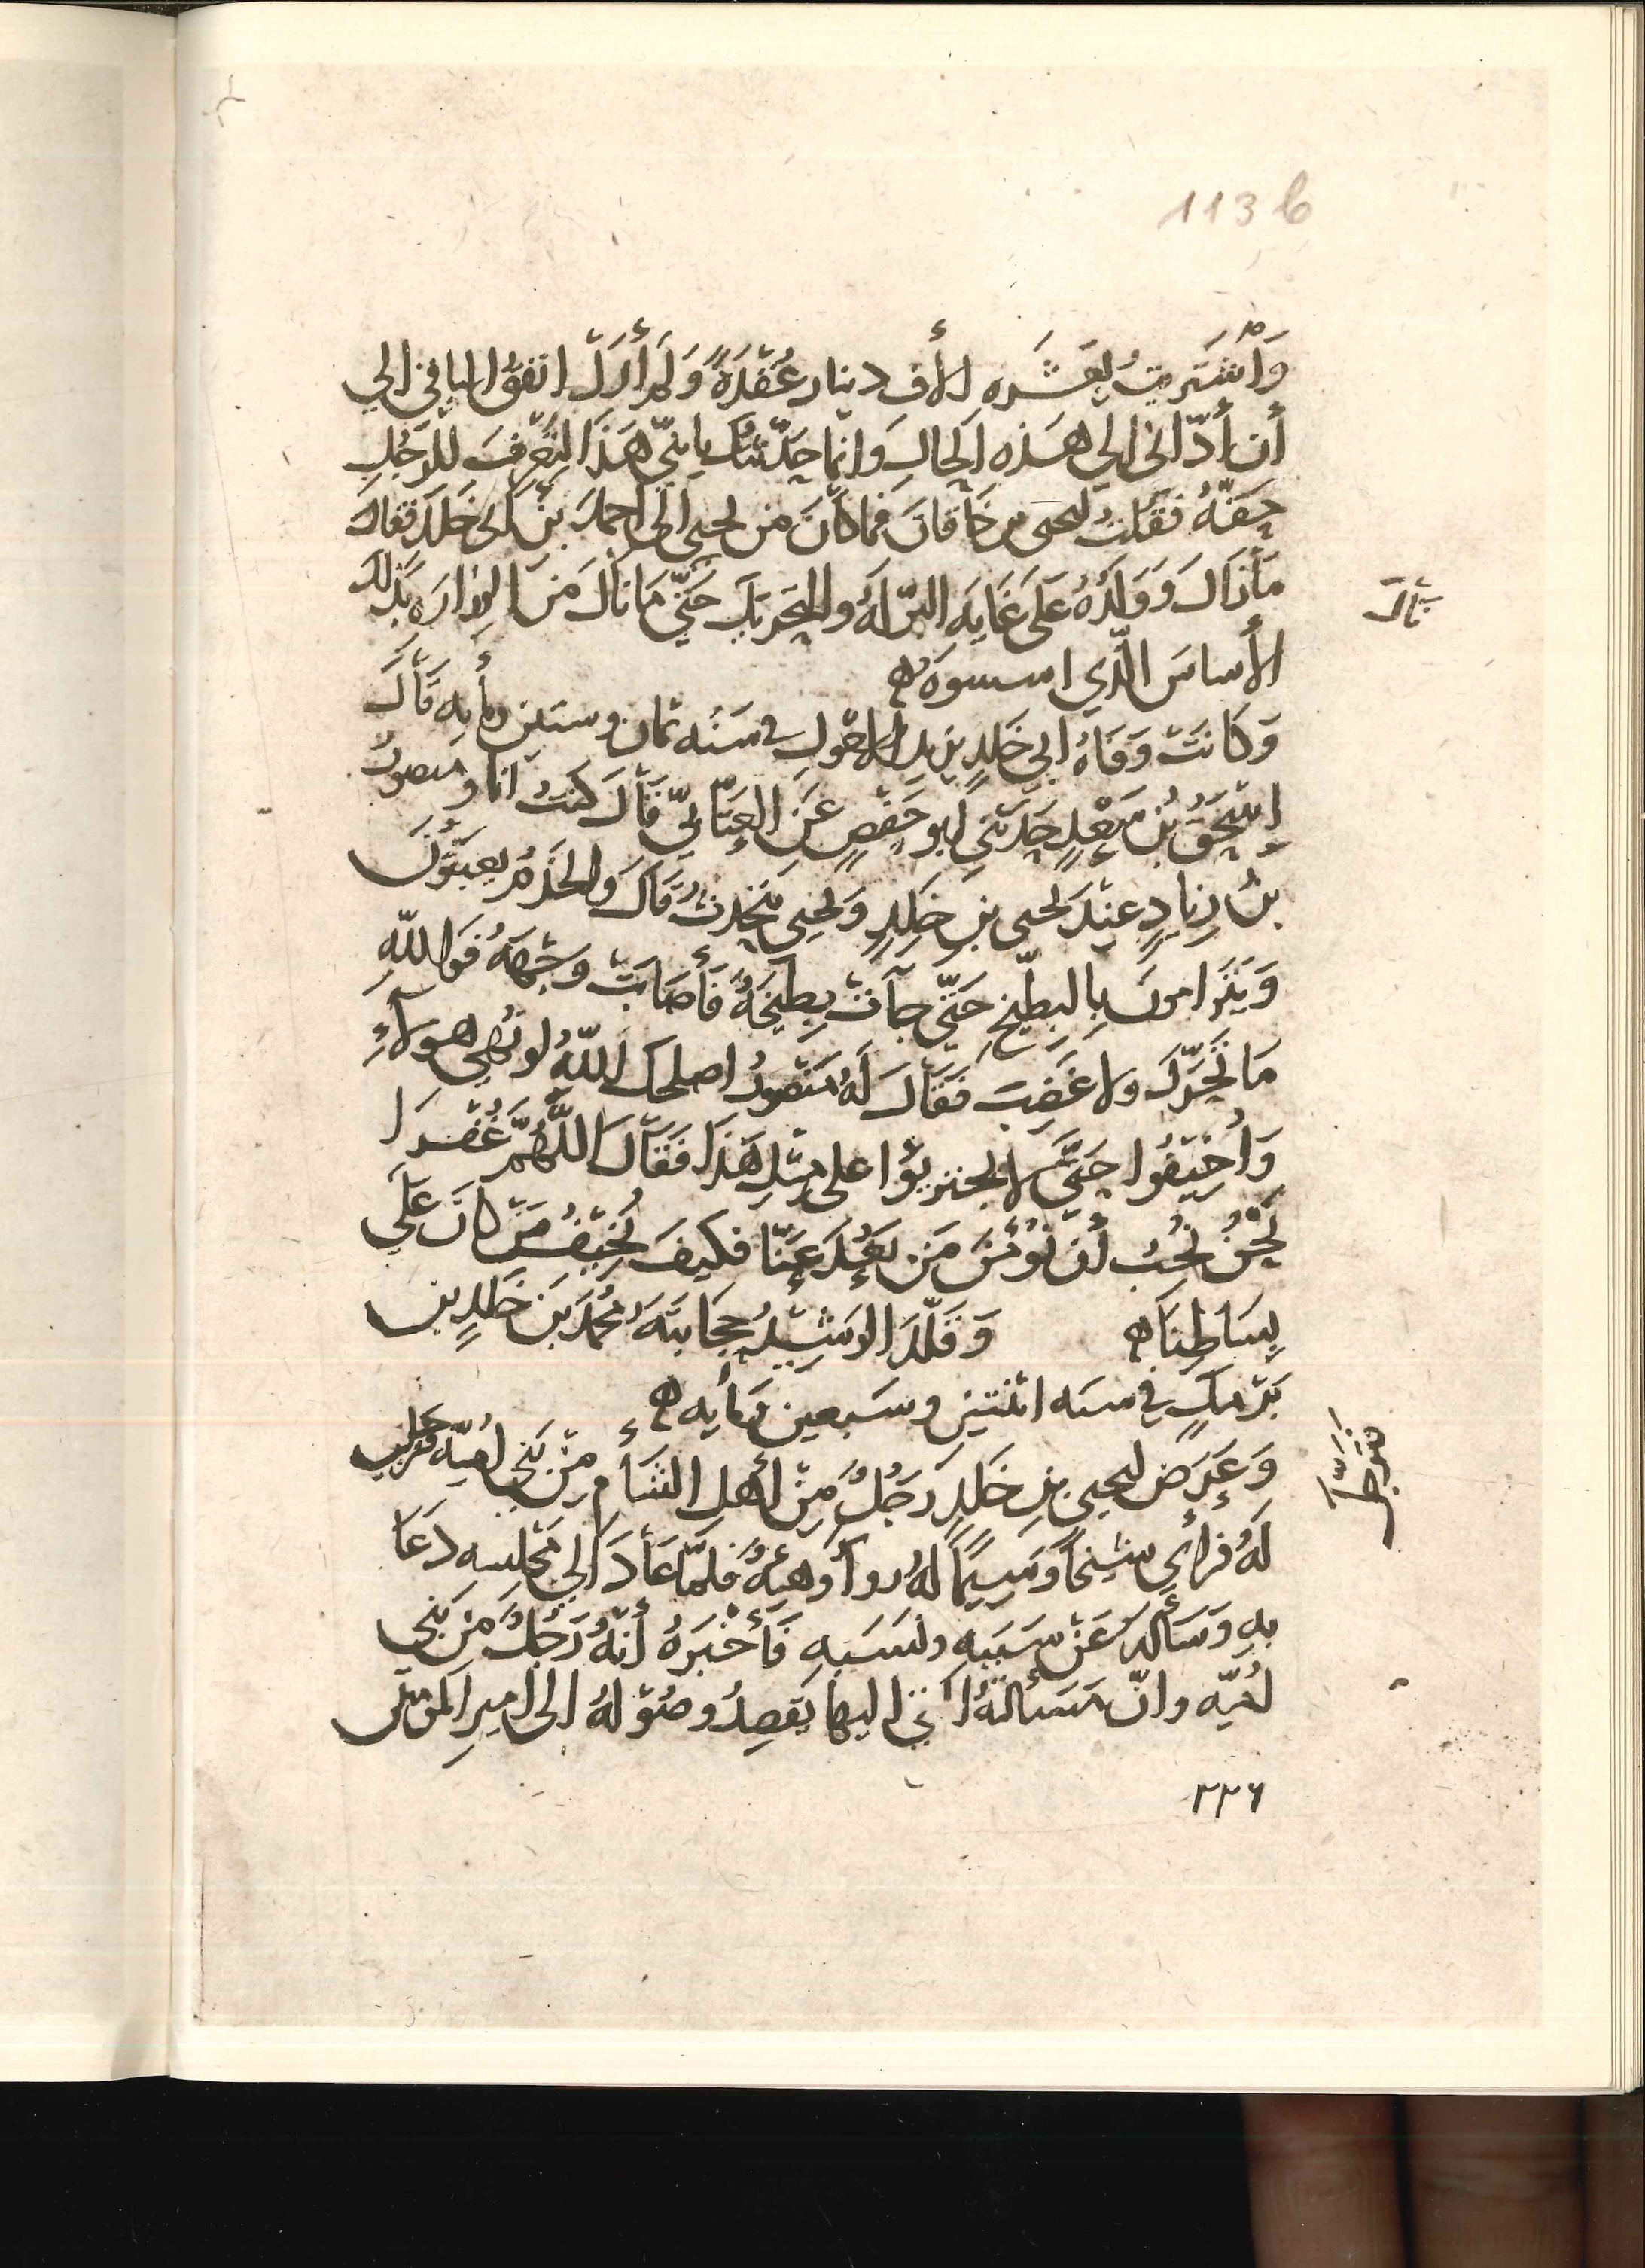 113 b
وَاشْتَرَيتُ بِعَشَره الأف دينار عُقْدَةً وَلَم أَزَلْ انفقُ الباقي الي
أن أدّاني الي هَذِه الحالِ وَانّما حدّثتُكَ يا بنيّ هَذا لتَعْرِفَ للرَجُلِ
حَقَّهُ فَقُلتُ ليحيى بن خَاقَانَ فما كانَ من يحيى الى احمدَ بنْ ابي خلدَ فقالَ
مَا زَالَ وَوَلَدُهُ عَلى غَايَه البّر لَهُ والتحَريك حَتّي مَا نالَ مَن الوزارَه بذلكَ
نَالَ
الأساسَ الّذي اسسوهُ ۞
وَكَانَتْ وَفَاهُ ابي خَلدٍ يزيد الاحْولِ في سَنَه ثمان وستين ومأيه قَالَ
إسْحَقُ بْن سَعْدٍ حَدّثني ابو حَفْصٍ عَن العَتّابيّ قَالَ كنتُ انا وَمنصورُ
بنُ زيادٍ عِنْدَ يحيى بنِ خلدٍ وَيحيى يتحدثُ قَالَ وَالخَدَمُ يعبَثُونَ
وَيَتَرَامونَ بِالبطّيخ حَتّي جآتْ بِطّيخَةٌ فَأصَابَتْ وَجْهَهُ فَوَاللّهِ
مَا تحَرّكَ ولا غَضِبَ فَقَالَ لَهُ مَنْصورُ اصلحكَ اللّهُ لو نُهي هولآءِ
وَاُخِيفُوا حَتَّي لا يجترِيُوا على مِثلِ هَذَا فَقَالَ اللّهُمَّ غُفْرَا
نَحْنُ نُحبُ أن نُؤْمِنَ مَن بَعُدَ عَنّا فكيفَ نُخِيْفُ مَن كانَ عَلَي
بِسَاطِنَا ۞ وَقَلّدَ الرَشِيْدُ حِجَابَتَهُ مُحمّدَ بَنَ خلدٍ بنِ
بَرْمكٍ في سنه اثنتين وسَبعين ومَأيه ۞
وَعَرَض ليحيى بنِ خلدٍ رَجُلٌ مِنْ أهلِ الشَأمِ مِنْ بَني اُميّه
لَهُ فرأي شيخًا وَسِيمًا لهُ روآ وَهيئةٌ فلمّا عَادَ الي مَجْلسِه دَعَا
بهِ وَسَألهُ عَنْ سَبَبِه ونَسَبِه فَأخْبَرَهُ أنّهُ رَجُلٌ مِن بَني
اُميّه وانّ مَسَألتهُ التي اليها يَقصِدُ وصُوْلهُ الى امير المومنين
٢٢٦